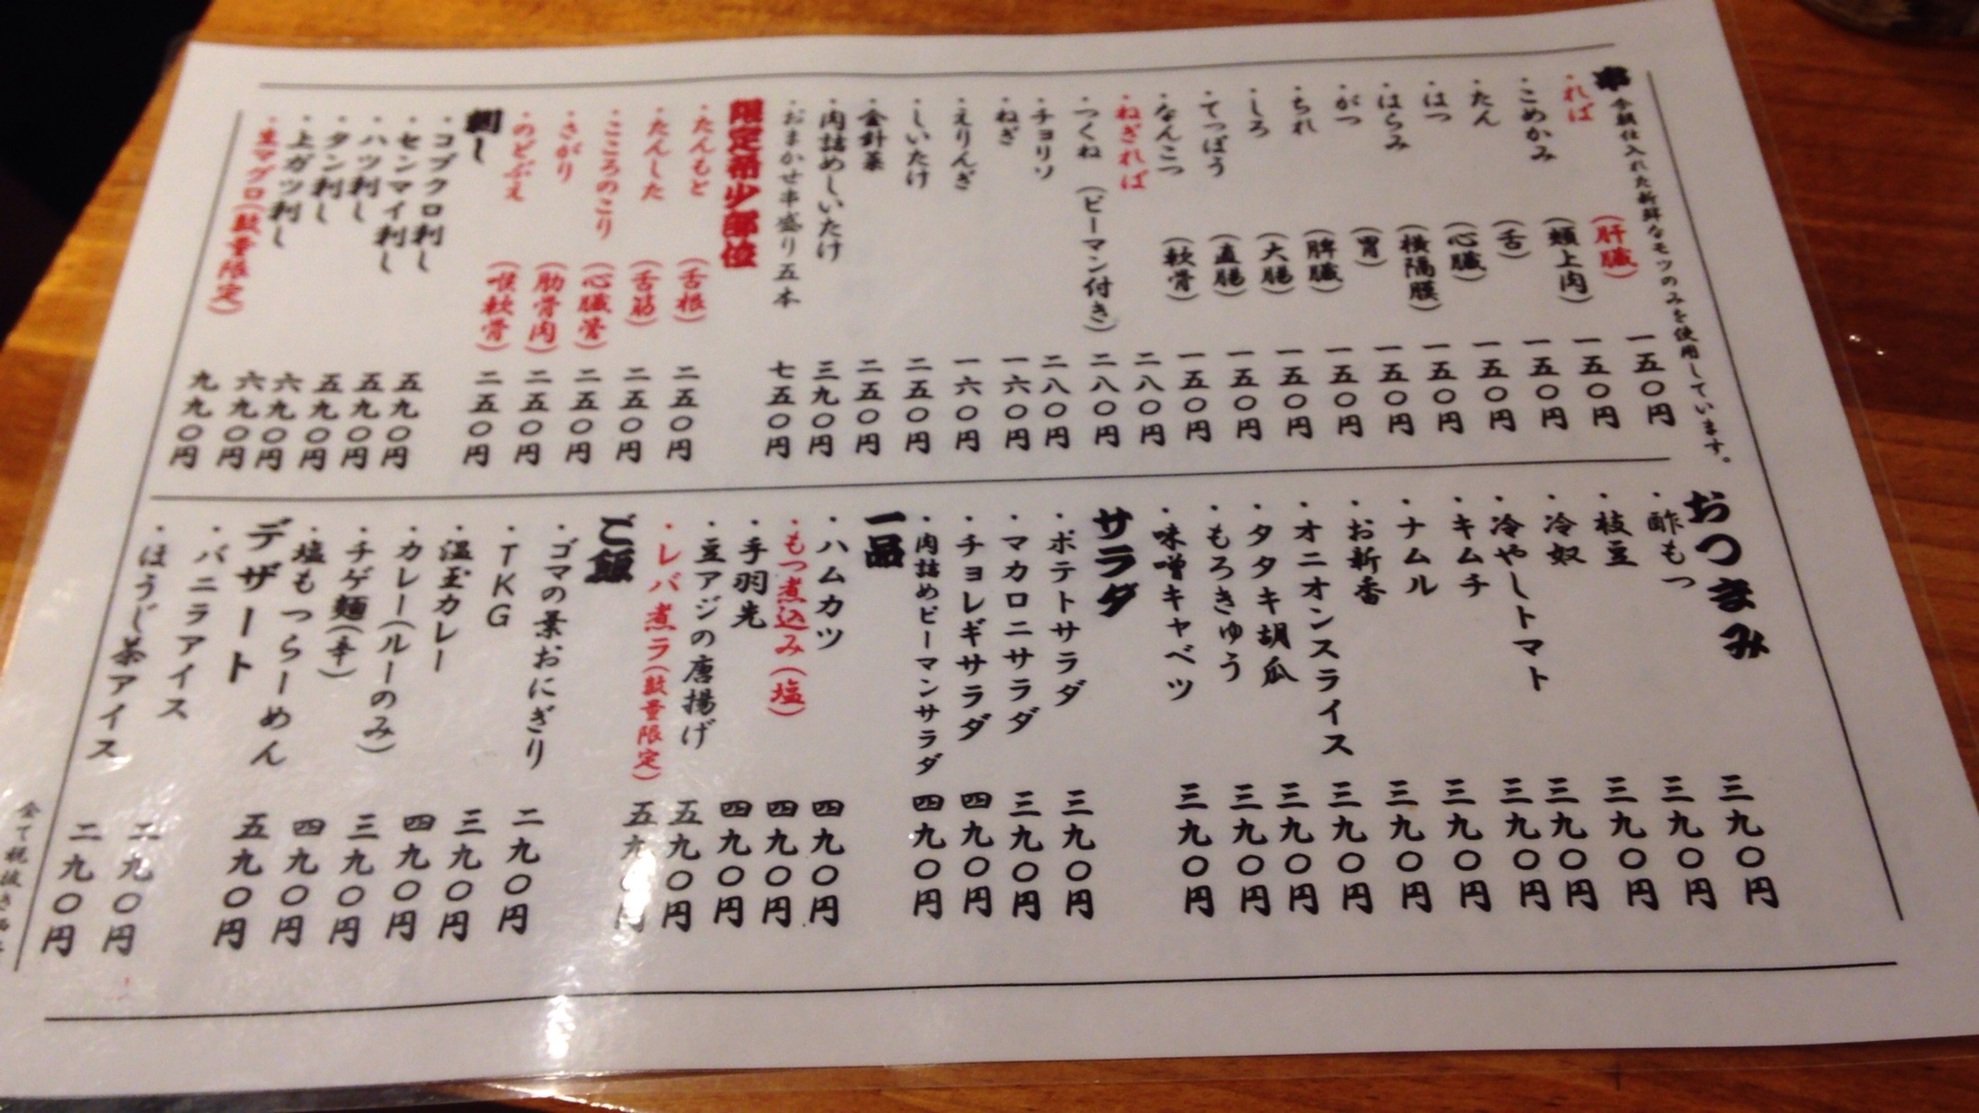 串 今朝仕入れた新鮮なモツのみを使用しています。
・れば (肝臓) 一五〇円
・こめかみ (頬上肉) 一五〇円
・たん (舌) 一五〇円
・はつ (心臓) 一五〇円
・はらみ (横隔膜) 一五〇円
・がつ (胃) 一五〇円
・ちれ (脾臓) 一五〇円
・しろ (大腸) 一五〇円
・てっぽう (直腸) 一五〇円
・なんこつ (軟骨) 一五〇円
・ねぎれば 二八〇円
・つくね (ピーマン付き) 二八〇円
・チョリソ 二八〇円
・ねぎ 一六〇円
・えりんぎ 一六〇円
・しいたけ 二五〇円
・金針菜 二五〇円
・肉詰めしいたけ 三九〇円
・おまかせ串盛り五本 七五〇円
限定希少部位
・たんもと (舌根) 二五〇円
・たんした (舌筋) 二五〇円
・こころのこり (心臓管) 二五〇円
・さがり (肋骨肉) 二五〇円
・のどぶえ (喉軟骨) 二五〇円
刺し
・コブクロ刺し 五九〇円
・センマイ刺し 五九〇円
・ハツ刺し 五九〇円
・タン刺し 六九〇円
・上ガツ刺し 六九〇円
・生マグロ(数量限定) 九九〇円
おつまみ
・酢もつ 三九〇円
・枝豆 三九〇円
・冷奴 三九〇円
・冷やしトマト 三九〇円
・キムチ 三九〇円
・ナムル 三九〇円
・お新香 三九〇円
・オニオンスライス 三九〇円
・タタキ胡瓜 三九〇円
・もろきゅう 三九〇円
・味噌キャベツ 三九〇円
サラダ
・ポテトサラダ 三九〇円
・マカロニサラダ 三九〇円
・チョレギサラダ 四九〇円
・肉詰めピーマンサラダ 四九〇円
一品
・ハムカツ 四九〇円
・もつ煮込み(塩) 四九〇円
・手羽先 四九〇円
・豆アジの唐揚げ 五九〇円
・レバ煮ラ(数量限定) 五九〇円
ご飯
・ゴマの葉おにぎり 二九〇円
・TKG 三九〇円
・温玉カレー 四九〇円
・カレー(ルーのみ) 三九〇円
・チゲ麺(辛) 四九〇円
・塩もつらーめん 五九〇円
デザート
・バニラアイス 二九〇円
・ほうじ茶アイス 二九〇円
全て税抜き